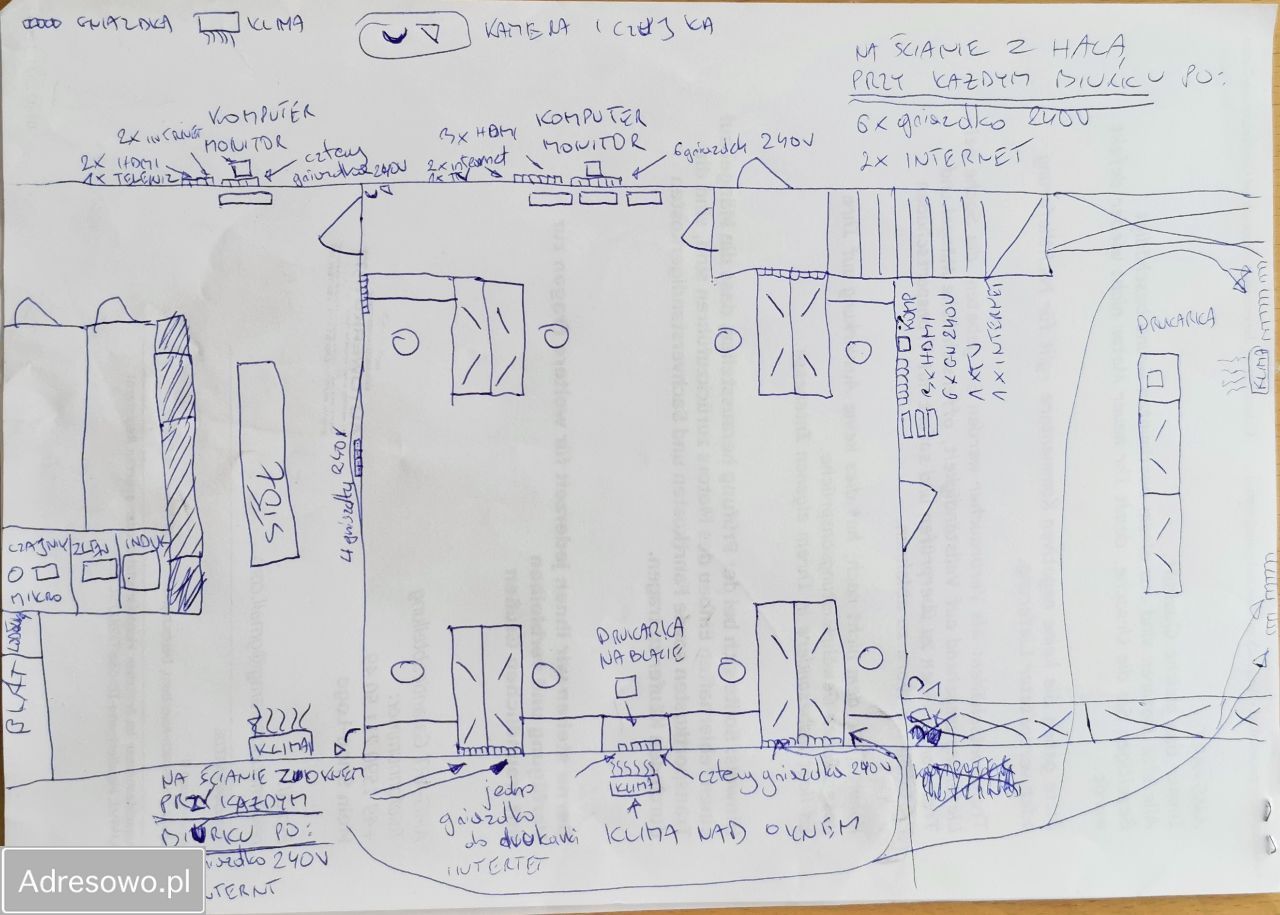 GNIAZDKA
KLIMA
KAMERA I CZUJKA
NA ŚCIANIE Z HALĄ
PRZY KAŻDYM BIURKU PO:
6x gniazdko 240V
2x INTERNET
KOMPUTER
MONITOR
2x INTERNET
2x HDMI
1x TELEWIZ
cztery
gniazdka 240V
KOMPUTER
MONITOR
3x HDMI
2x internet
1x TV
6 gniazdek 240V
KOMP
3x HDMI
6x GN 240V
1x TV
1x INTERNET
DRUKARKA
KLIMA
STÓŁ
4 gniazdka 240V
CZAJNIK
ZLEW
INDUK
MIKRO
BLAT
DRUKARKA
NA BLACIE
KLIMA
KLIMA
cztery gniazdka 240V
KLIMA NAD OKNEM
jedno
gniazdko
do drukarki
INTERTET
NA ŚCIANIE Z OKNEM
PRZY KAŻDYM
BIURKU PO:
gniazdko 240V
INTERNT
Adresowo.pl